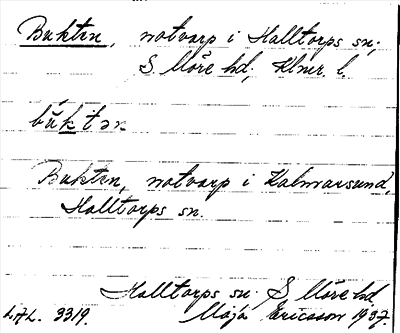 Buktən, notvarp i Halltorps sn;
S. Möre hd; Klmr. l.
búktən
Buktən, notvarp i Kalmarsund,
Halltorps sn.
Halltorps sn. S Möre hd
L.A.L. 3319. Maja Ericsson 1937.